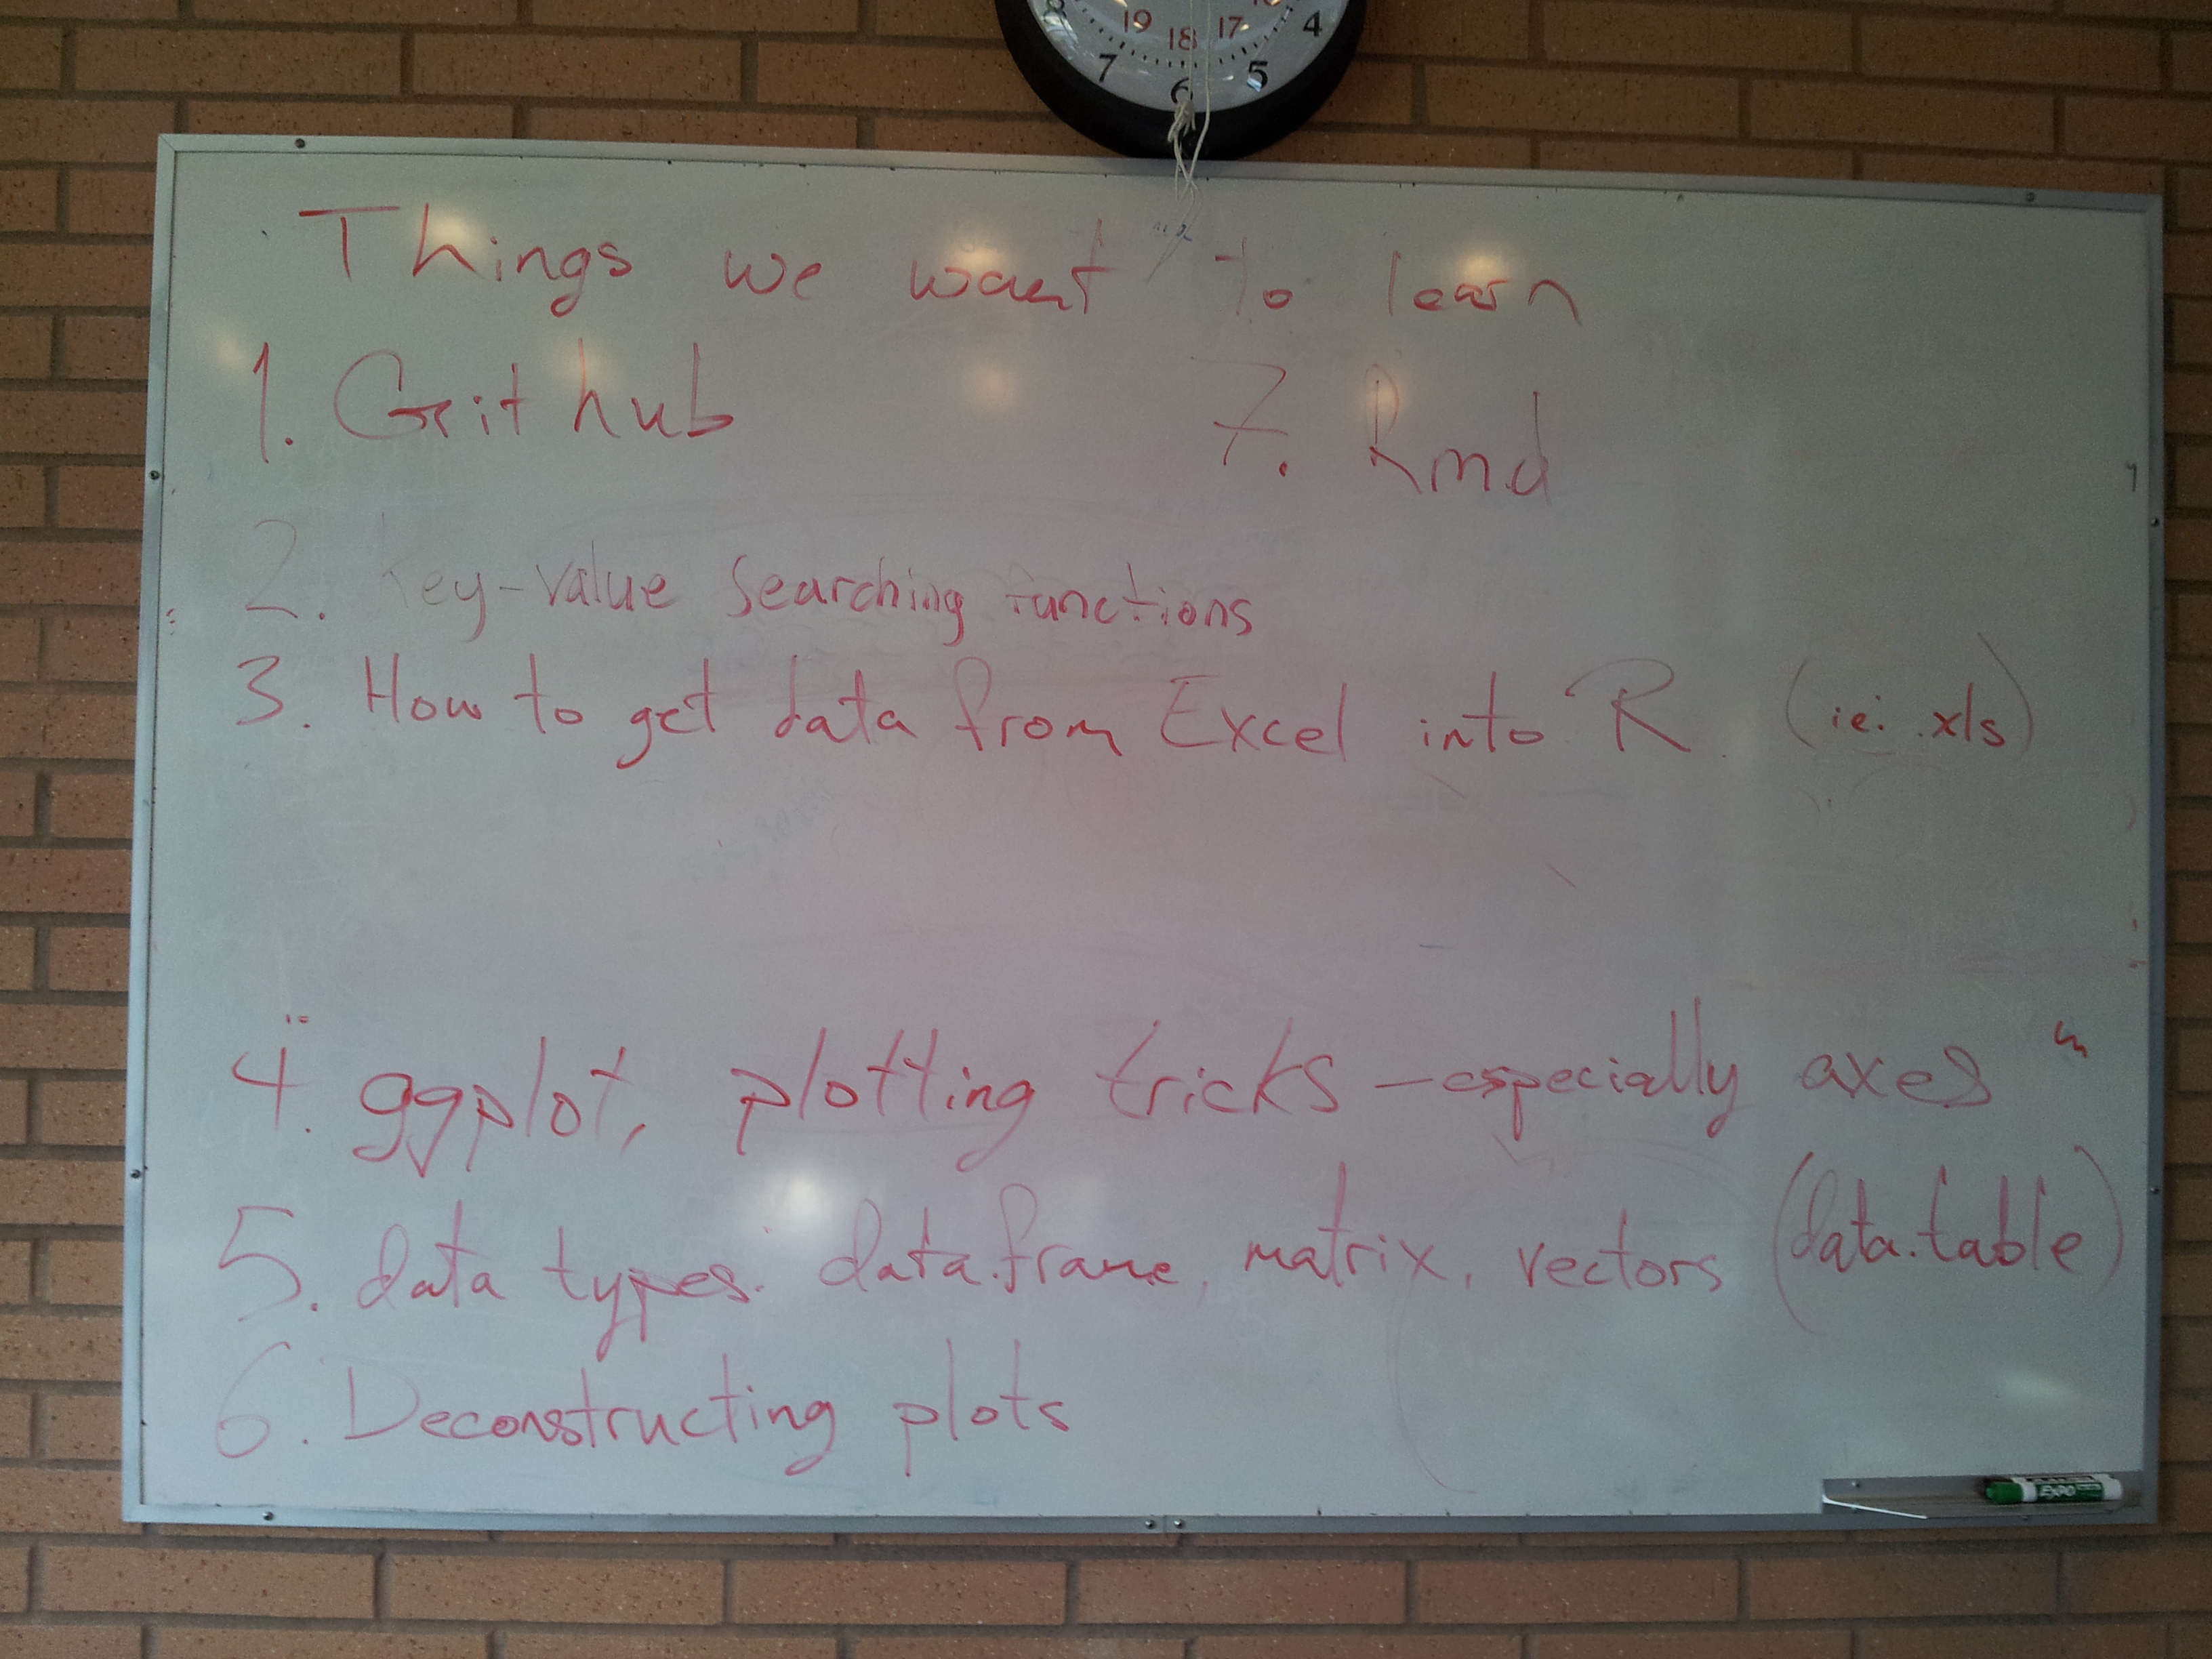 19 18 17
8 7 6 5 4
Things we want to learn
1. Github
7. Rmd
2. Key-value searching functions
3. How to get data from Excel into R (ie. .xls)
4. ggplot, plotting tricks – especially axes
5. data types: data.frame, matrix, vectors (data.table)
6. Deconstructing plots
EXPO